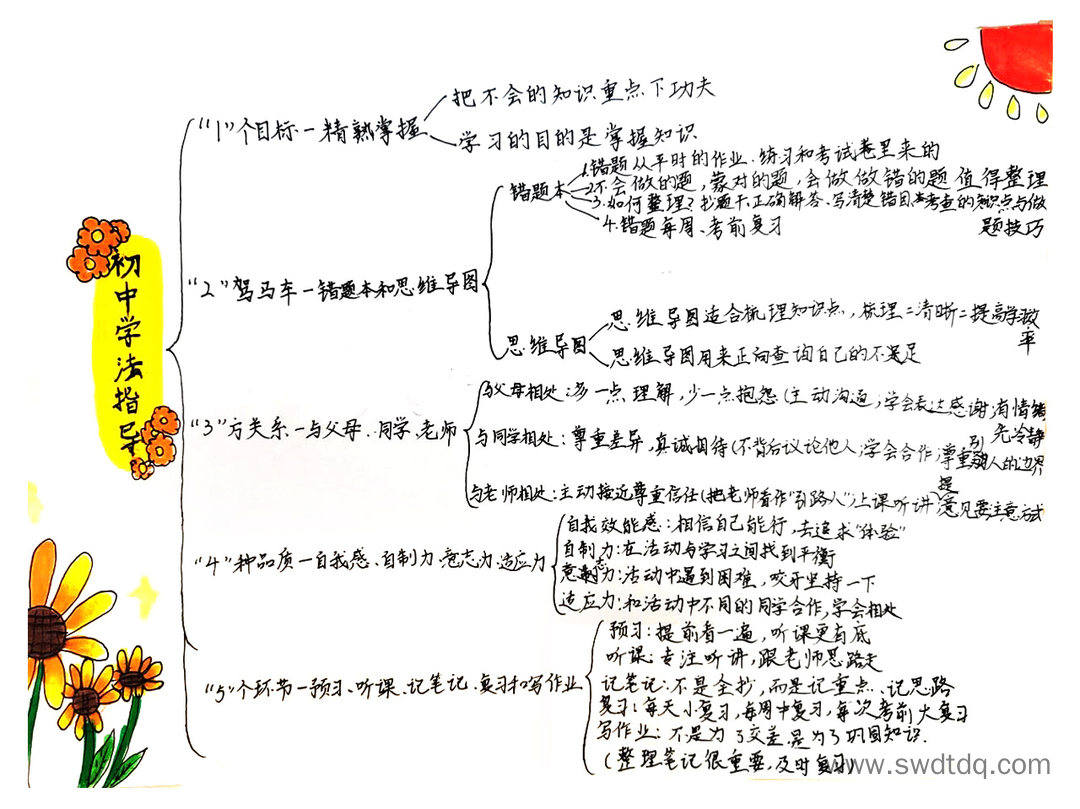 初中学法指导
"1"个目标-精熟掌握
把不会的知识重点下功夫
学习的目的是掌握知识
"2"驾马车-错题本和思维导图
错题本
1.错题从平时的作业、练习和考试卷里来的
2.不会做的题,蒙对的题,会做做错的题值得整理
3.如何整理?抄题干、正确解答、写清楚错因、考查的知识点与做
题技巧
4.错题每周、考前复习
思维导图
思维导图适合梳理知识点,梳理=清晰=提高学习效
率
思维导图用来正向查询自己的不足
"3"方关系-与父母、同学、老师
与父母相处:多一点理解,少一点抱怨(主动沟通,学会表达感谢,有情绪
先冷静
与同学相处:尊重差异,真诚相待(不背后议论他人,学会合作,尊重别人的边界
与老师相处:主动接近尊重信任(把老师看作"引路人")上课听讲,提意见要注意方式
"4"种品质-自我感、自制力、意志力、适应力
自我效能感:相信自己能行,去追求"体验"
自制力:在活动与学习之间找到平衡
意志力:活动中遇到困难,咬牙坚持一下
适应力:和活动中不同的同学合作,学会相处
"5"个环节-预习、听课、记笔记、复习和写作业
预习:提前看一遍,听课更有底
听课:专注听讲,跟老师思路走
记笔记:不是全抄,而是记重点、记思路
复习:每天小复习,每周中复习,每次考前大复习
写作业:不是为了交差,是为了巩固知识.
(整理笔记很重要,及时复习)
www.swdtdq.com